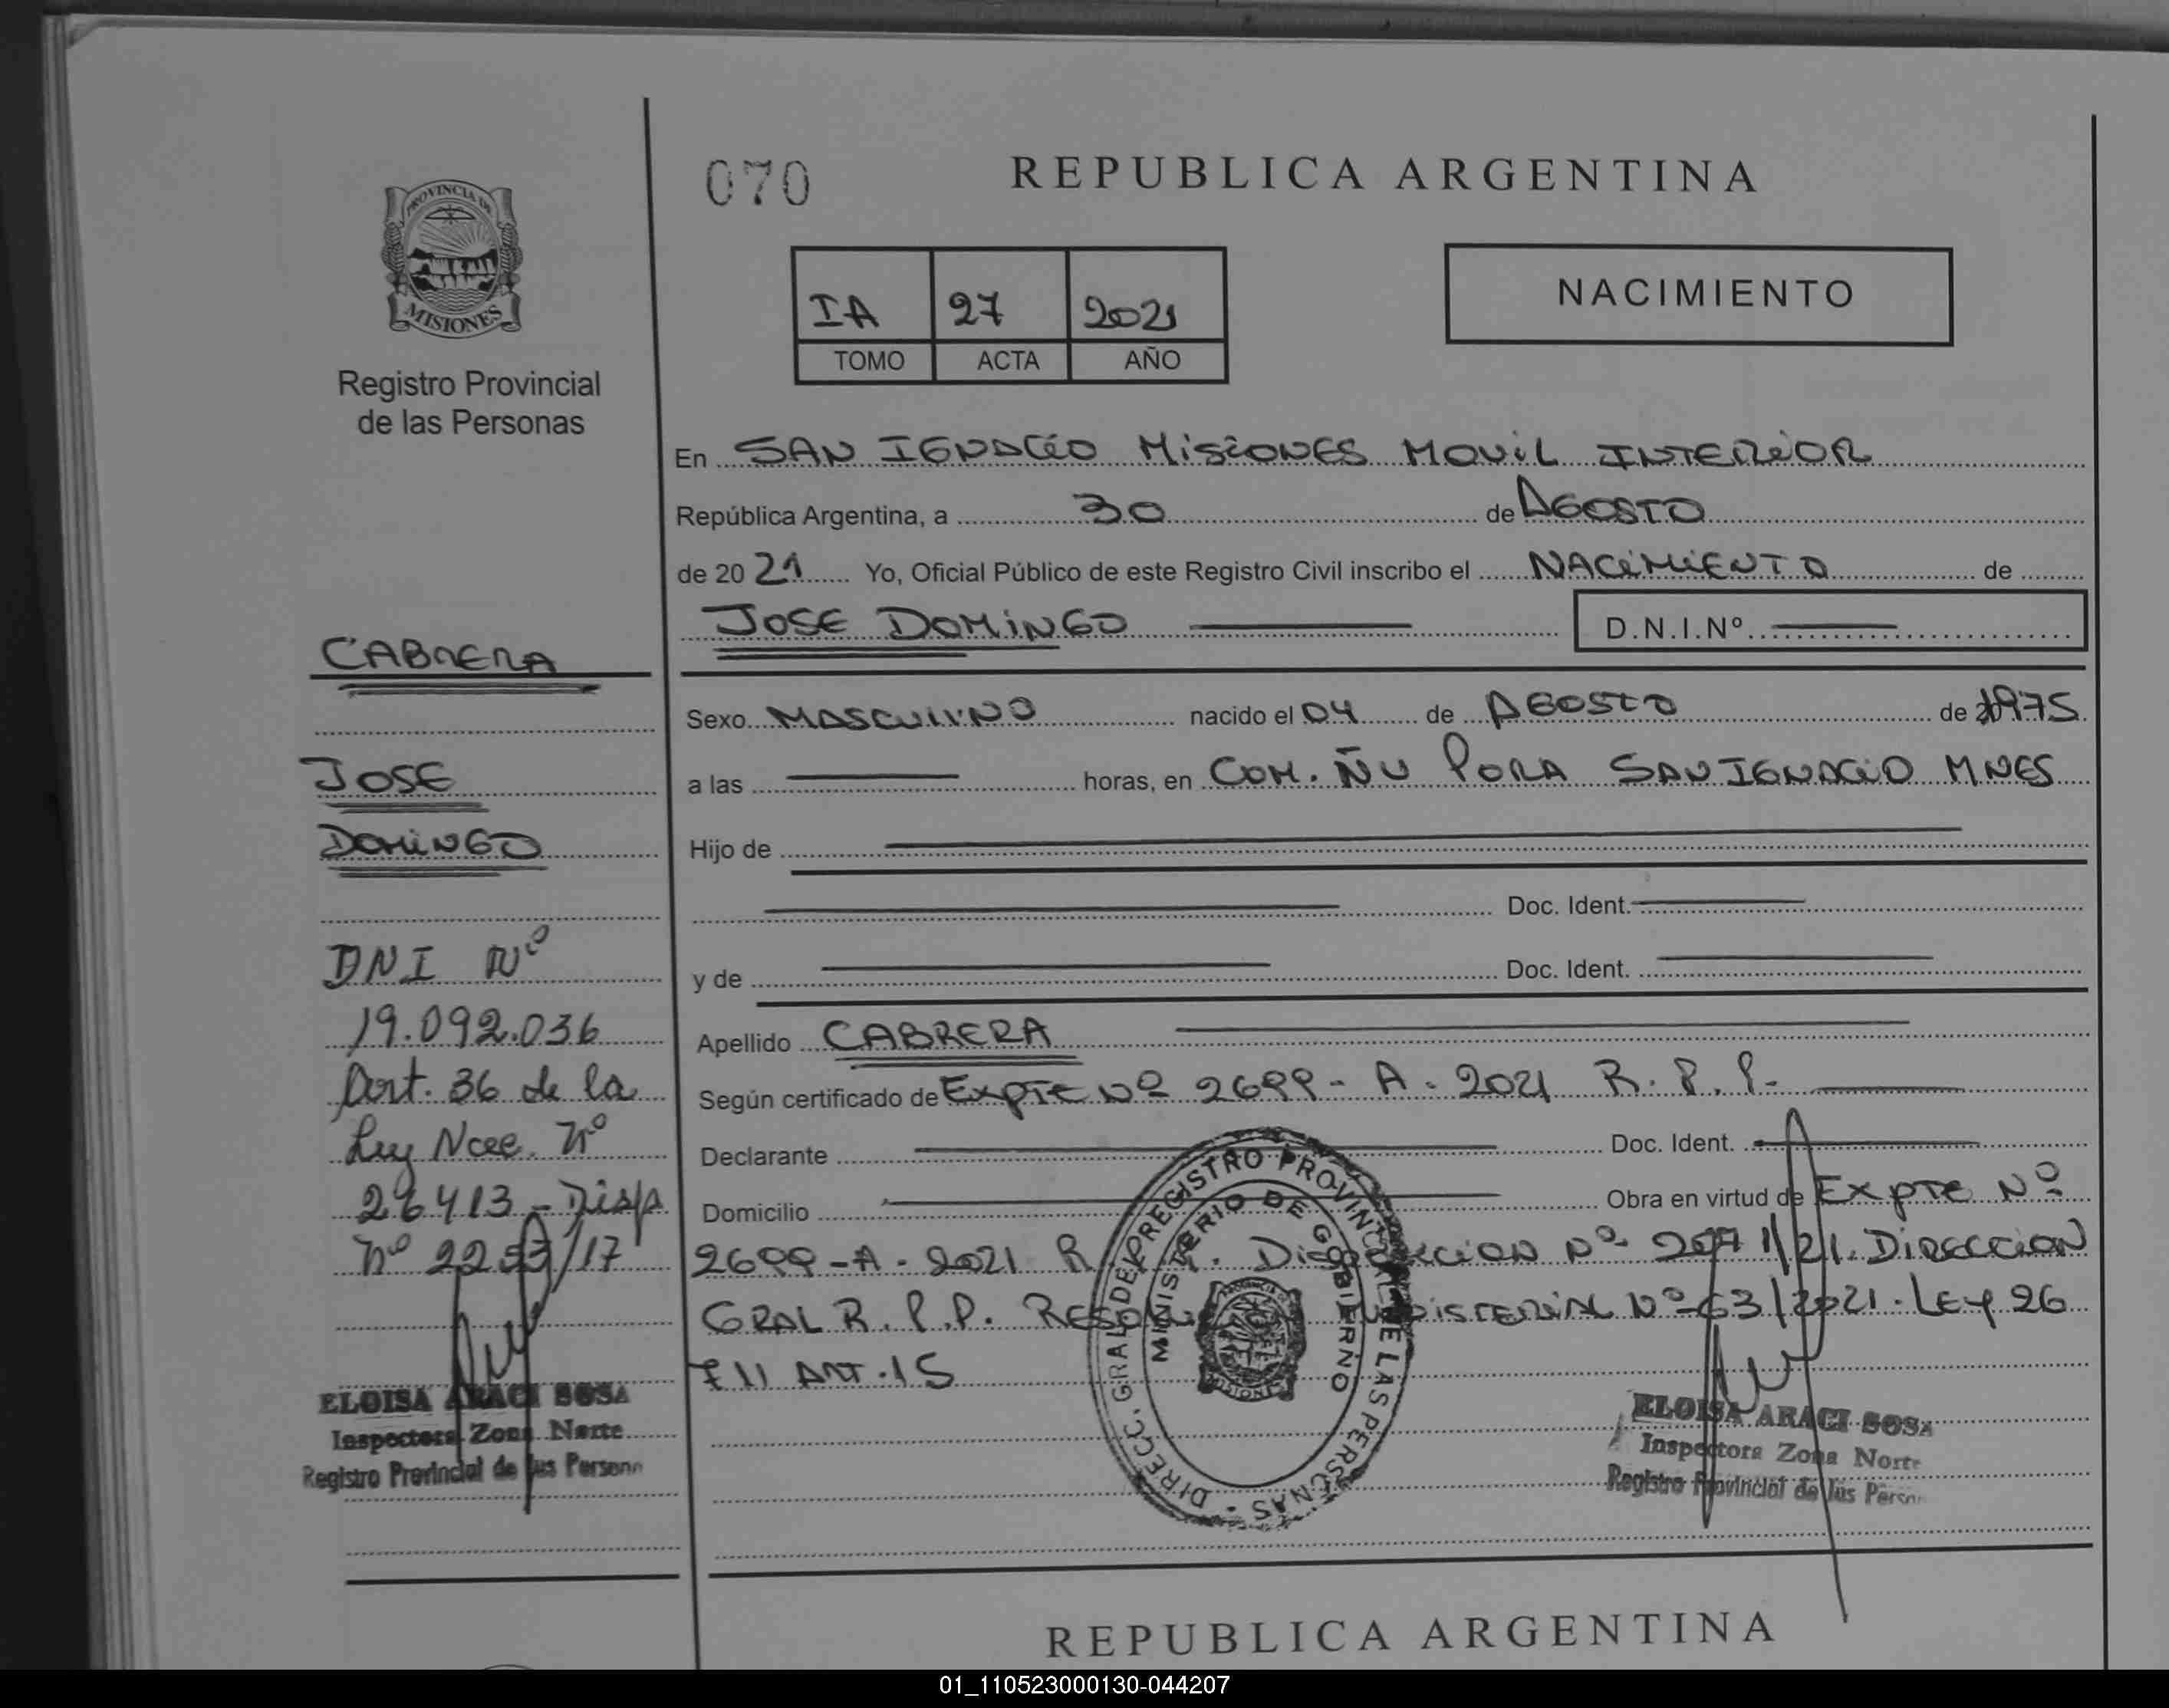 070
REPUBLICA ARGENTINA
PROVINCIA DE
MISIONES
Registro Provincial
de las Personas
IA 27 2021
TOMO ACTA AÑO
NACIMIENTO
En SAN IGNACIO MISIONES MOVIL INTERIOR
República Argentina, a 30 de AGOSTO
de 20 21 Yo, Oficial Público de este Registro Civil inscribo el NACIMIENTO de
JOSE DOMINGO D.N.I.Nº
Sexo MASCULINO nacido el 04 de AGOSTO de 1975
a las horas, en COM. ÑU PORA SAN IGNACIO MNES
Hijo de
Doc. Ident.
y de Doc. Ident.
Apellido CABRERA
Según certificado de EXPTE Nº 2699-A-2021 R.P.P.
Declarante Doc. Ident.
Domicilio Obra en virtud de EXPTE Nº
2699-A-2021 R DIRECCION
GRAL R.P.P. Nº 63/2021. LEY 26
ART. 15
CABRERA
JOSE
DOMINGO
DNI Nº
19.092.036
Art. 36 de la
Ley Nº
26413 - Disp
Nº /17
ELOISA ARACI SOSA
Inspectora Zona Norte
Registro Provincial de las Persona
DIRECC. GRAL DEL REGISTRO PROVINCIAL DE LAS PERSONAS
MINISTERIO DE GOBIERNO
MISIONES
ELOISA ARACI SOSA
Inspectora Zona Norte
Registro Provincial de las Person
REPUBLICA ARGENTINA
01_110523000130-044207